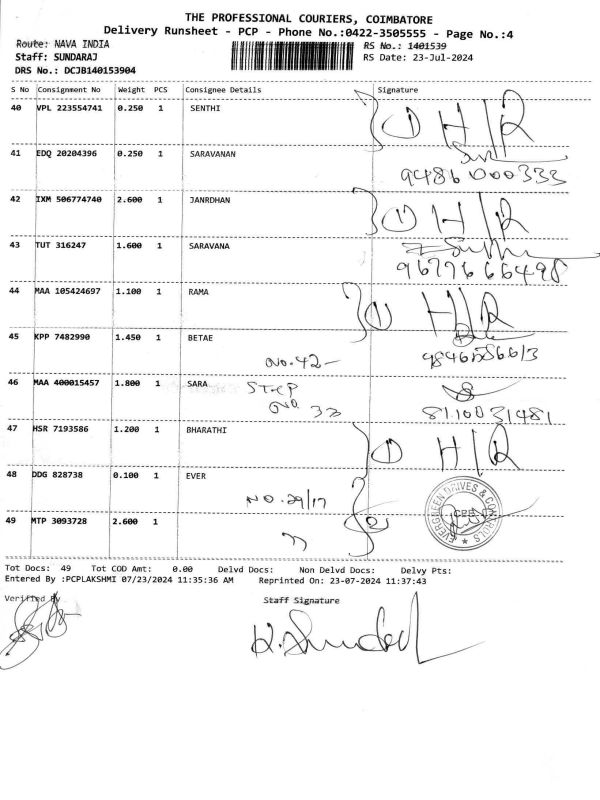 THE PROFESSIONAL COURIERS, COIMBATORE
Delivery Runsheet - PCP - Phone No.:0422-3505555 - Page No.:4
Route: NAVA INDIA RS No.: 1401539
Staff: SUNDARAJ RS Date: 23-Jul-2024
DRS No.: DCJB140153904
S No Consignment No Weight PCS Consignee Details Signature
40 VPL 223554741 0.250 1 SENTHI
41 EDQ 20204396 0.250 1 SARAVANAN
9486000333
42 IXM 506774740 2.600 1 JANRDHAN
43 TUT 316247 1.600 1 SARAVANA
9677666498
44 MAA 105424697 1.100 1 RAMA
45 KPP 7482990 1.450 1 BETAE
No.42-
46 MAA 400015457 1.800 1 SARA
No 33 8110031481
47 HSR 7193586 1.200 1 BHARATHI
48 DDG 828738 0.100 1 EVER
NO.29/17
EVERGREEN DRIVES & CONTROLS
49 MTP 3093728 2.600 1
Tot Docs: 49 Tot COD Amt: 0.00 Delvd Docs: Non Delvd Docs: Delvy Pts:
Entered By :PCPLAKSHMI 07/23/2024 11:35:36 AM Reprinted On: 23-07-2024 11:37:43
Verified By Staff Signature